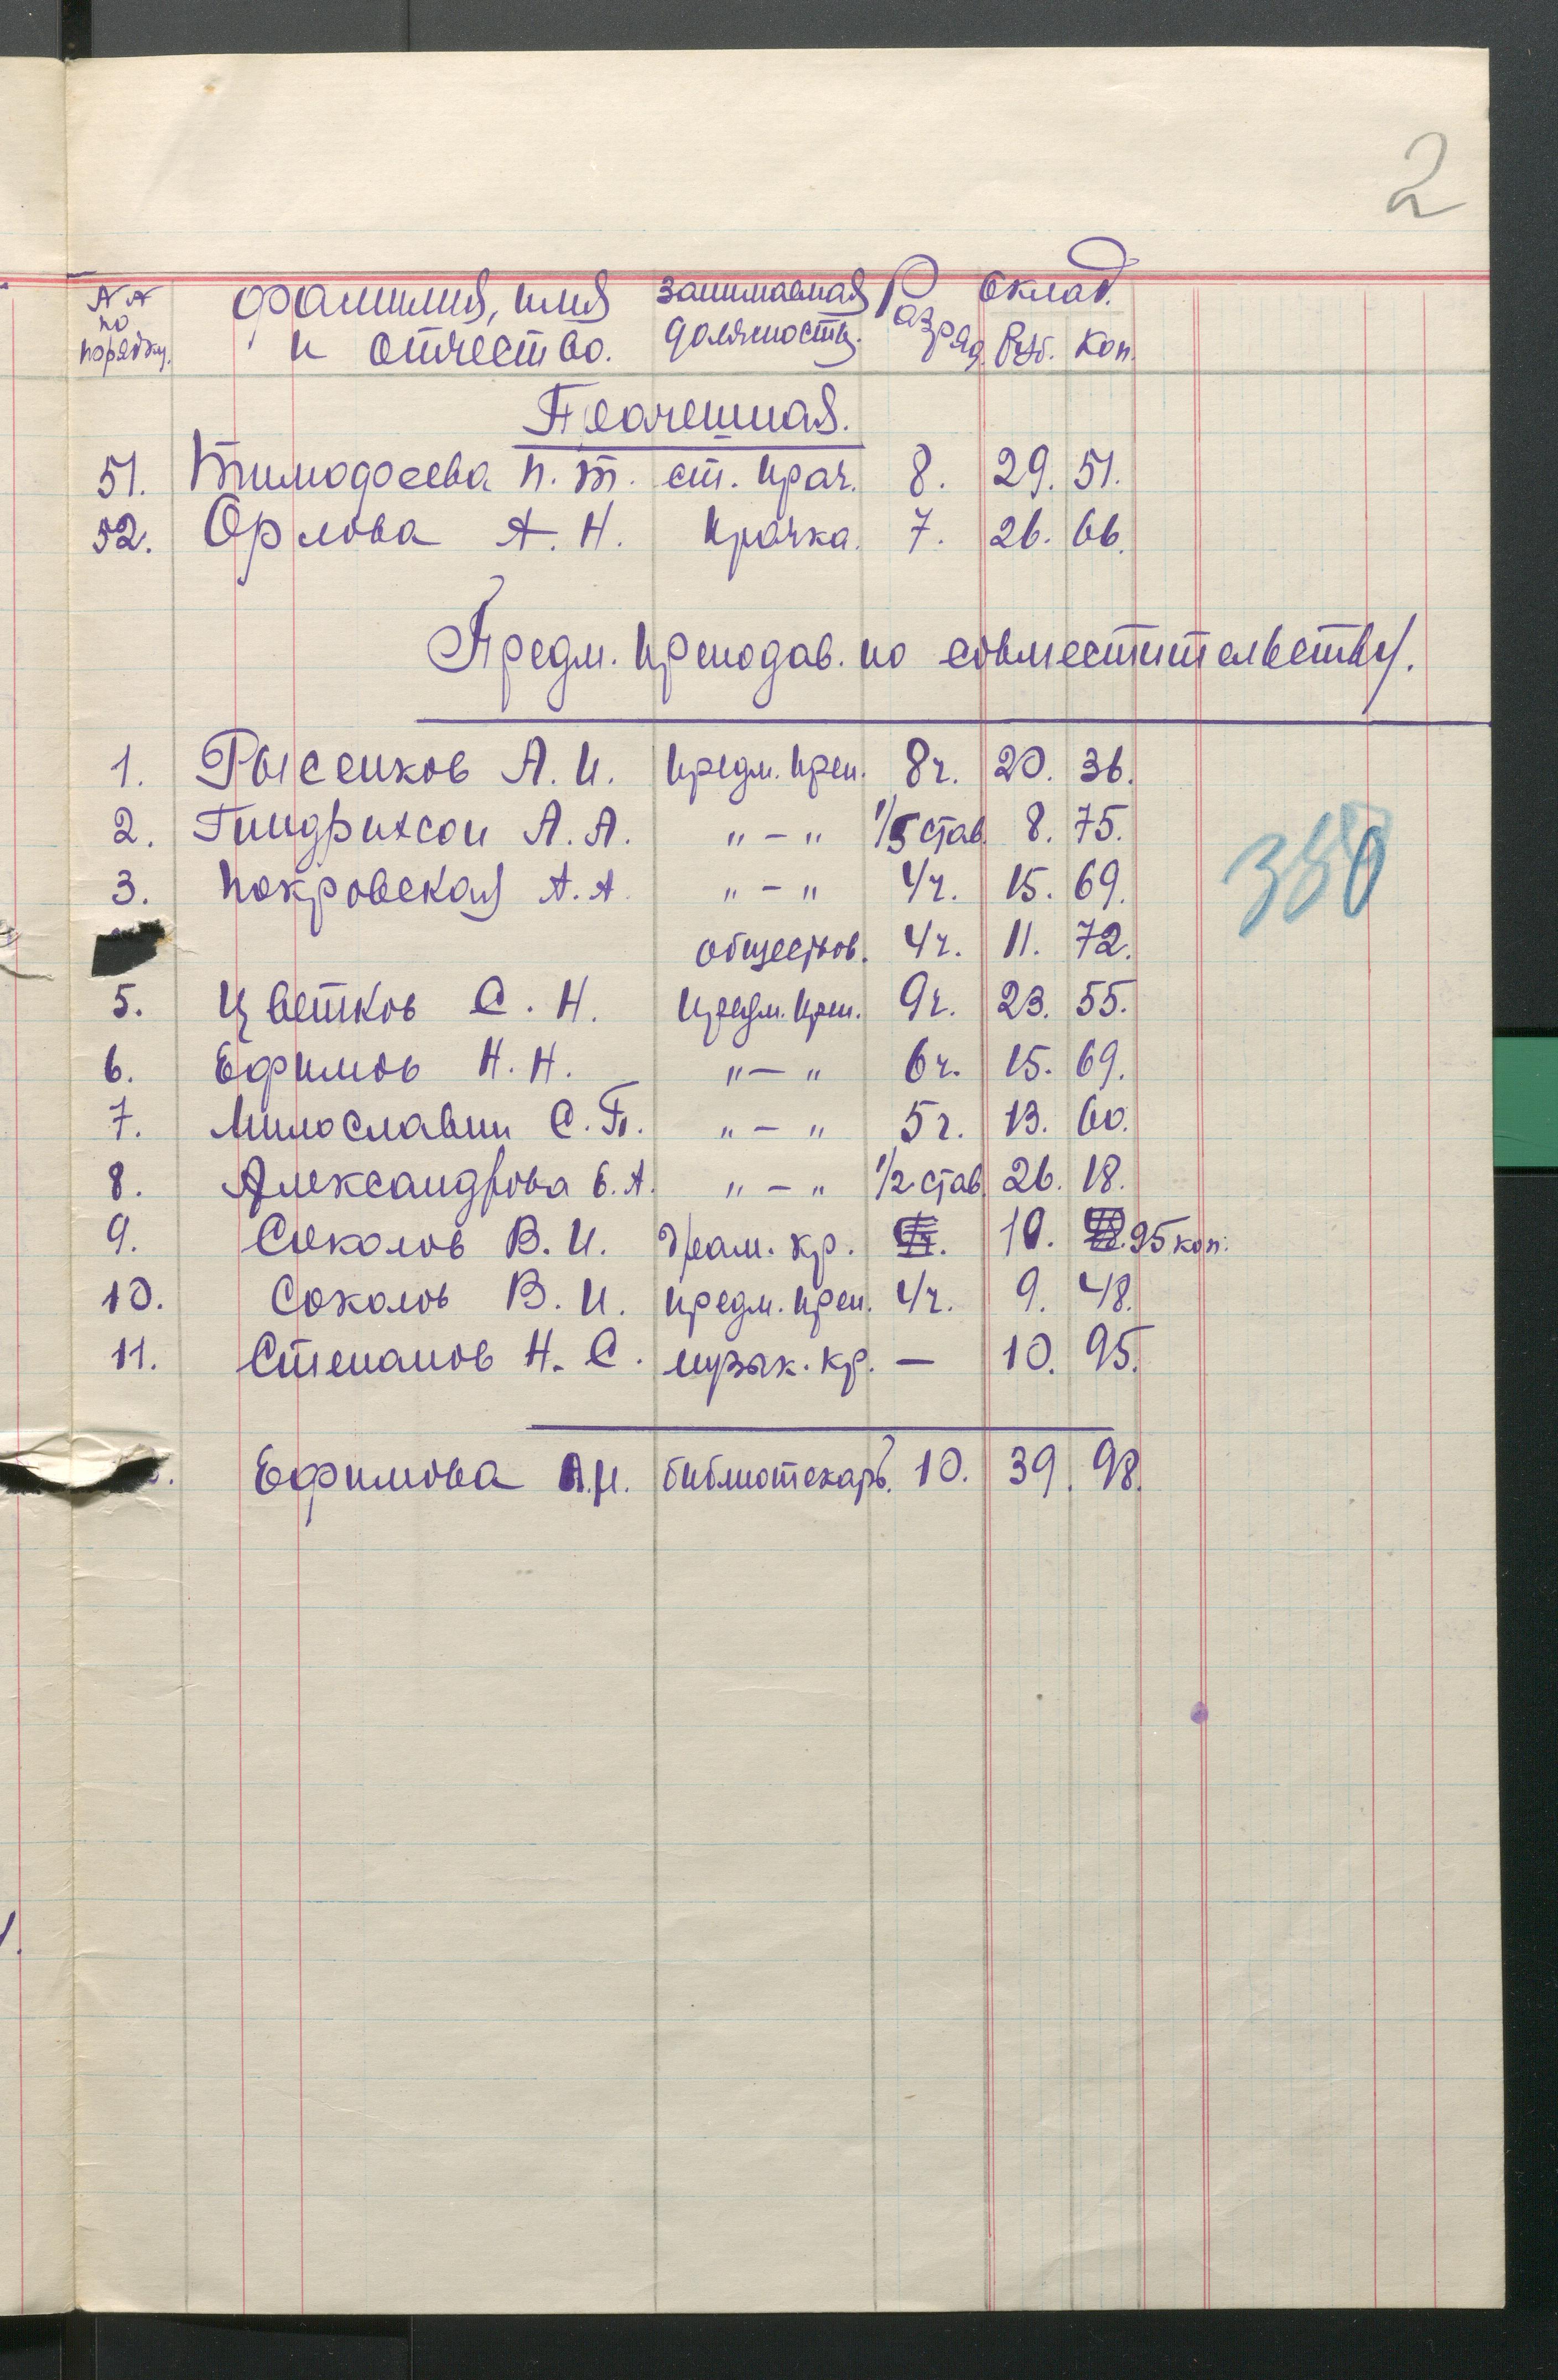 2
NN по порядку. фамилия, имя и отчество. занимаемая должность. Разряд Оклад. Руб. Коп.
Прачешная.
51. Тимофеева П. Т. ст. прач. 8. 29. 51.
52. Орлова А. Н. прачка. 7. 26. 66.
Предм. преподав. по совместительству.
1. Рысенков А. И. предм. преп. 8ч. 20. 36.
2. Гиндрихсон А. А. "–" 1/5 став. 8. 75.
3. Покровская А. А. "–" 4ч. 15. 69.
обществов. 4ч. 11. 72.
5. Цветков С. Н. предм. преп. 9ч. 23. 55.
6. Ефимов Н. Н. "–" 6ч. 15. 69.
7. Милославин С. П. "–" 5ч. 13. 60.
8. Александрова Е. А. "–" 1/2 став. 26. 18.
9. Соколов В. И. драм. кр. 10. 95 коп.
10. Соколов В. И. предм. преп. 4ч. 9. 48.
11. Степанов Н. С. музык. кр. – 10. 95.
Ефимова А.И. библиотекарь. 10. 39. 98.